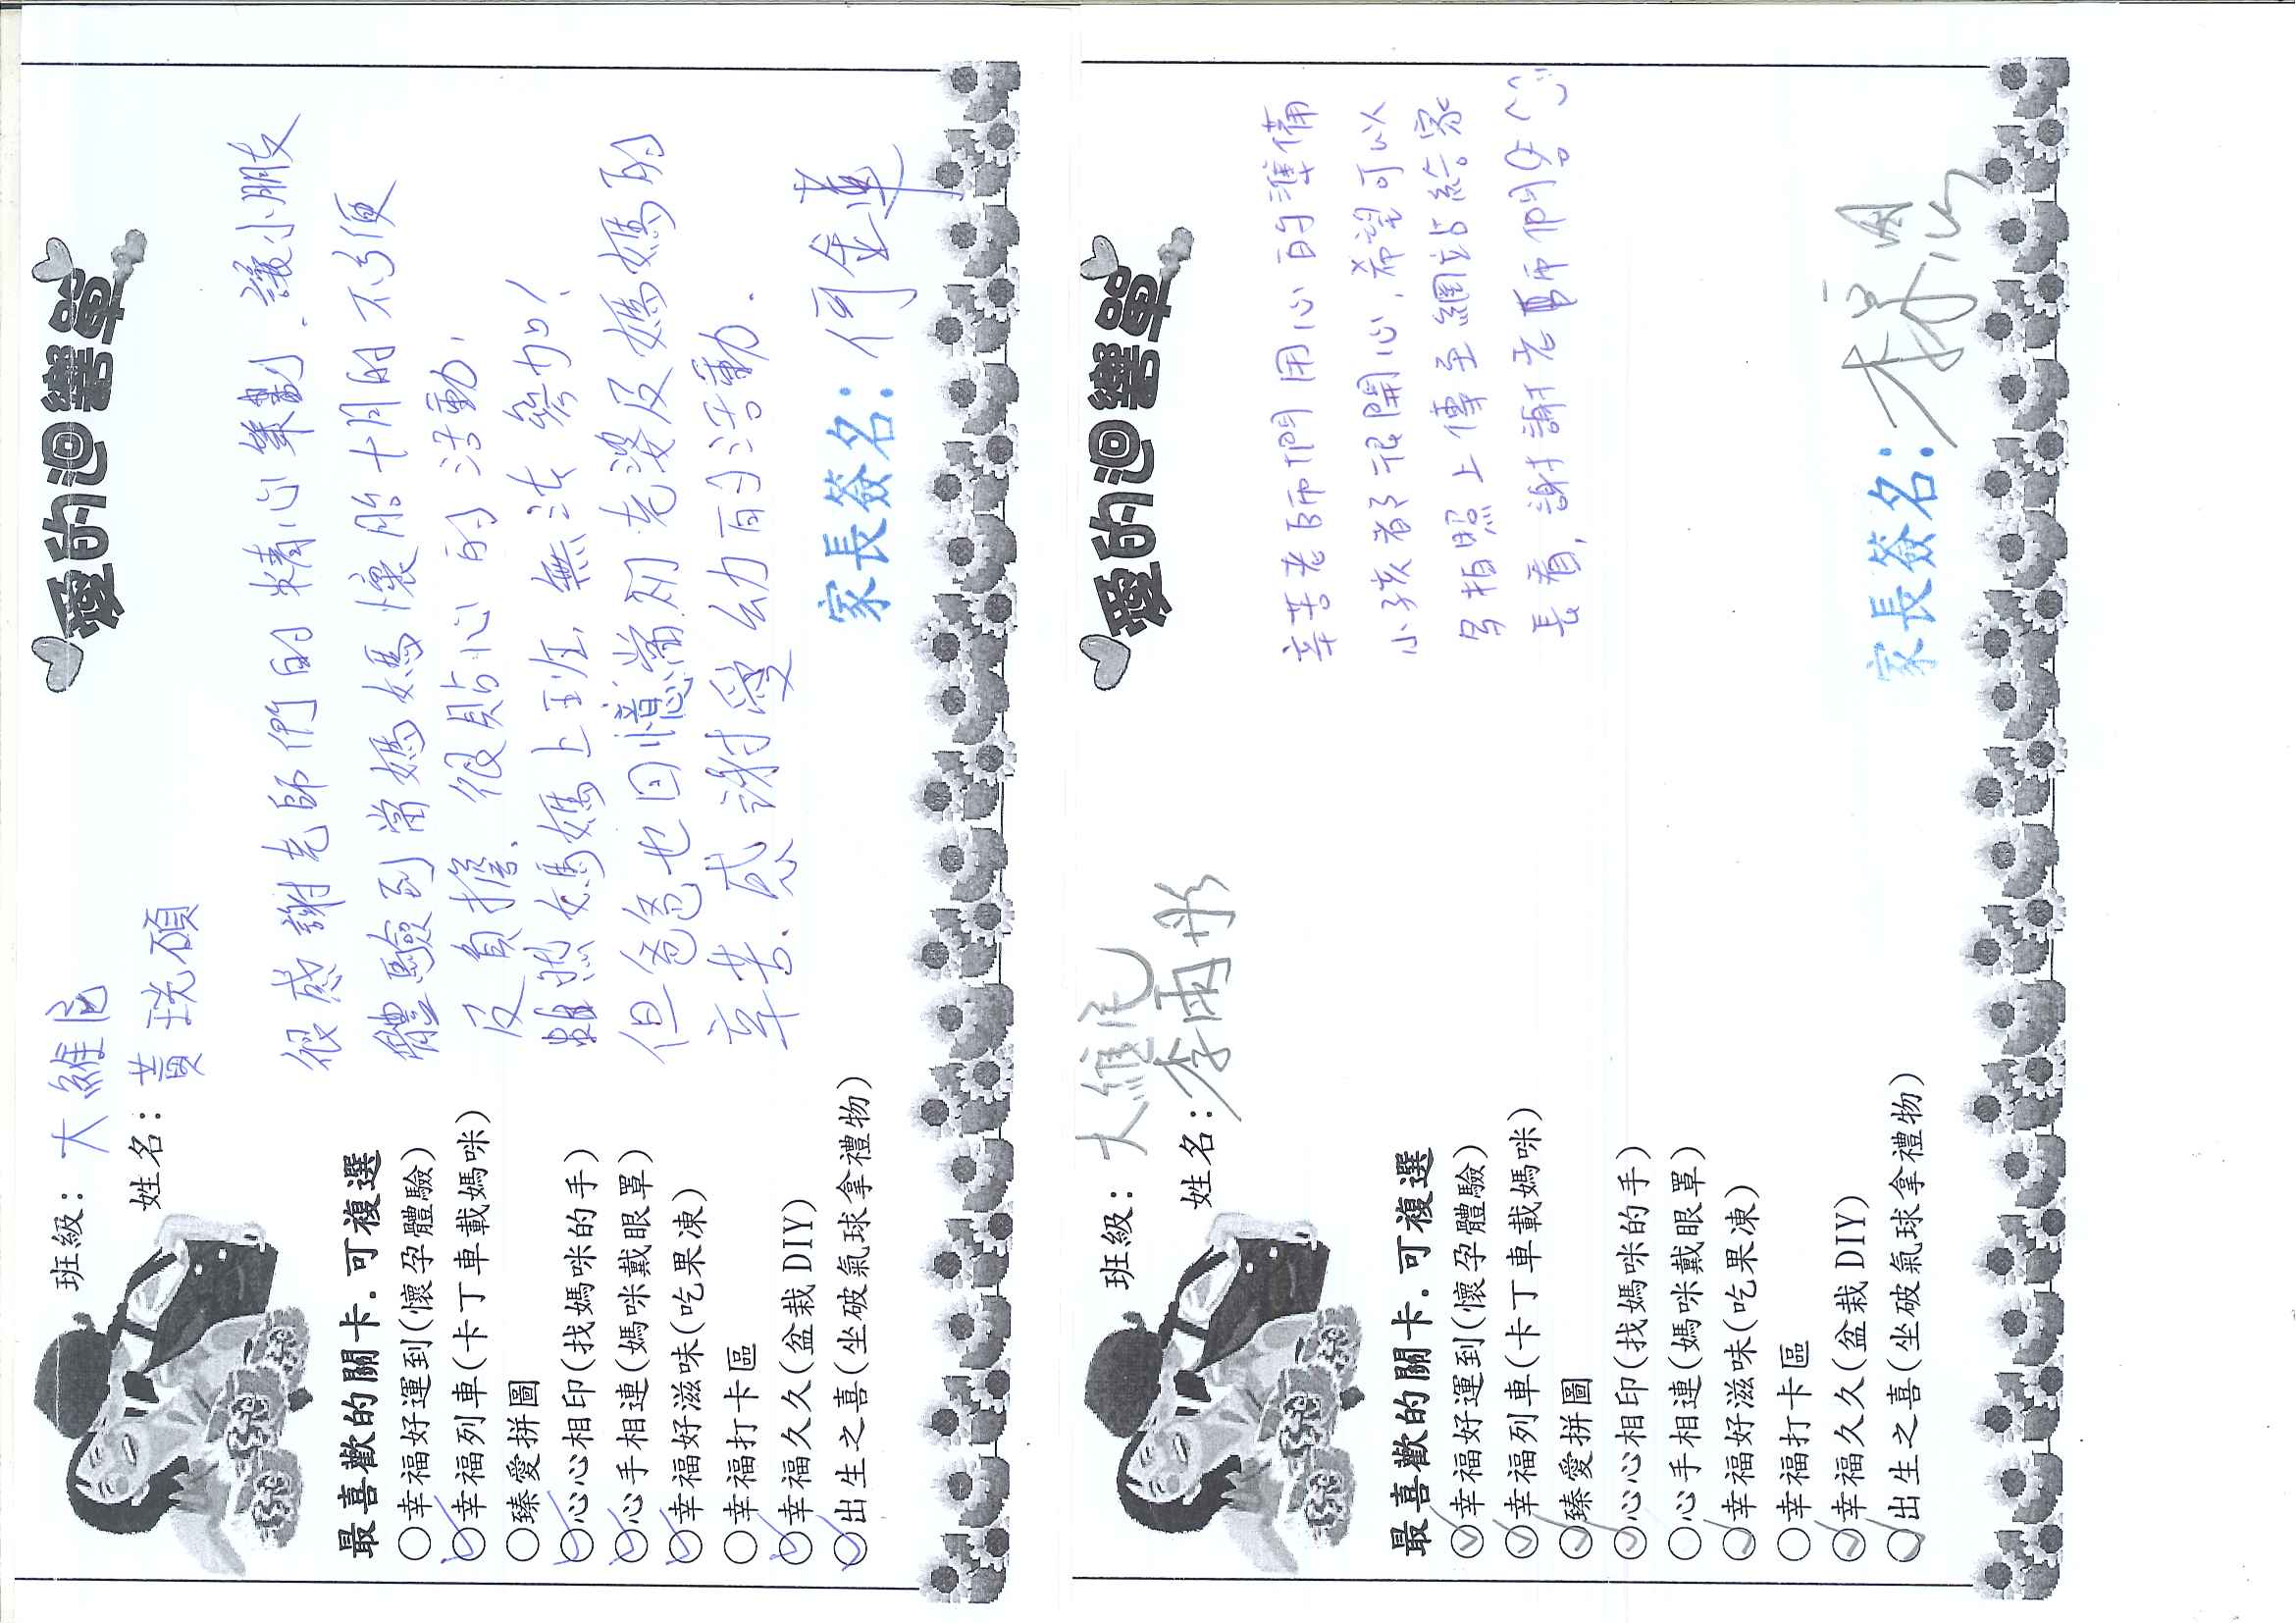 愛的迴響單
班級：大維尼
姓名：黃琓碩
最喜歡的關卡.可複選
幸福好運到(懷孕體驗)
幸福列車(卡丁車載媽咪)
臻愛拼圖
心心相印(找媽咪的手)
心手相連(媽咪戴眼罩)
幸福好滋味(吃果凍)
幸福打卡區
幸福久久(盆栽DIY)
出生之喜(坐破氣球拿禮物)
很感謝老師們的精心策劃.讓小朋友
體驗到當媽媽懷胎十月的不方便
及負擔、很貼心的活動,
雖然媽媽上班,無法參加!
但爸爸也回憶當初老婆及媽媽的
辛苦、感謝愛幼的活動.
家長簽名：何金蓮
愛的迴響單
班級：大維尼
姓名：李雨彤
最喜歡的關卡.可複選
幸福好運到(懷孕體驗)
幸福列車(卡丁車載媽咪)
臻愛拼圖
心心相印(找媽咪的手)
心手相連(媽咪戴眼罩)
幸福好滋味(吃果凍)
幸福打卡區
幸福久久(盆栽DIY)
出生之喜(坐破氣球拿禮物)
辛苦老師們用心的準備
小孩都很開心,希望可以
多拍照上傳至網站給家
長看,謝謝老師們
家長簽名：